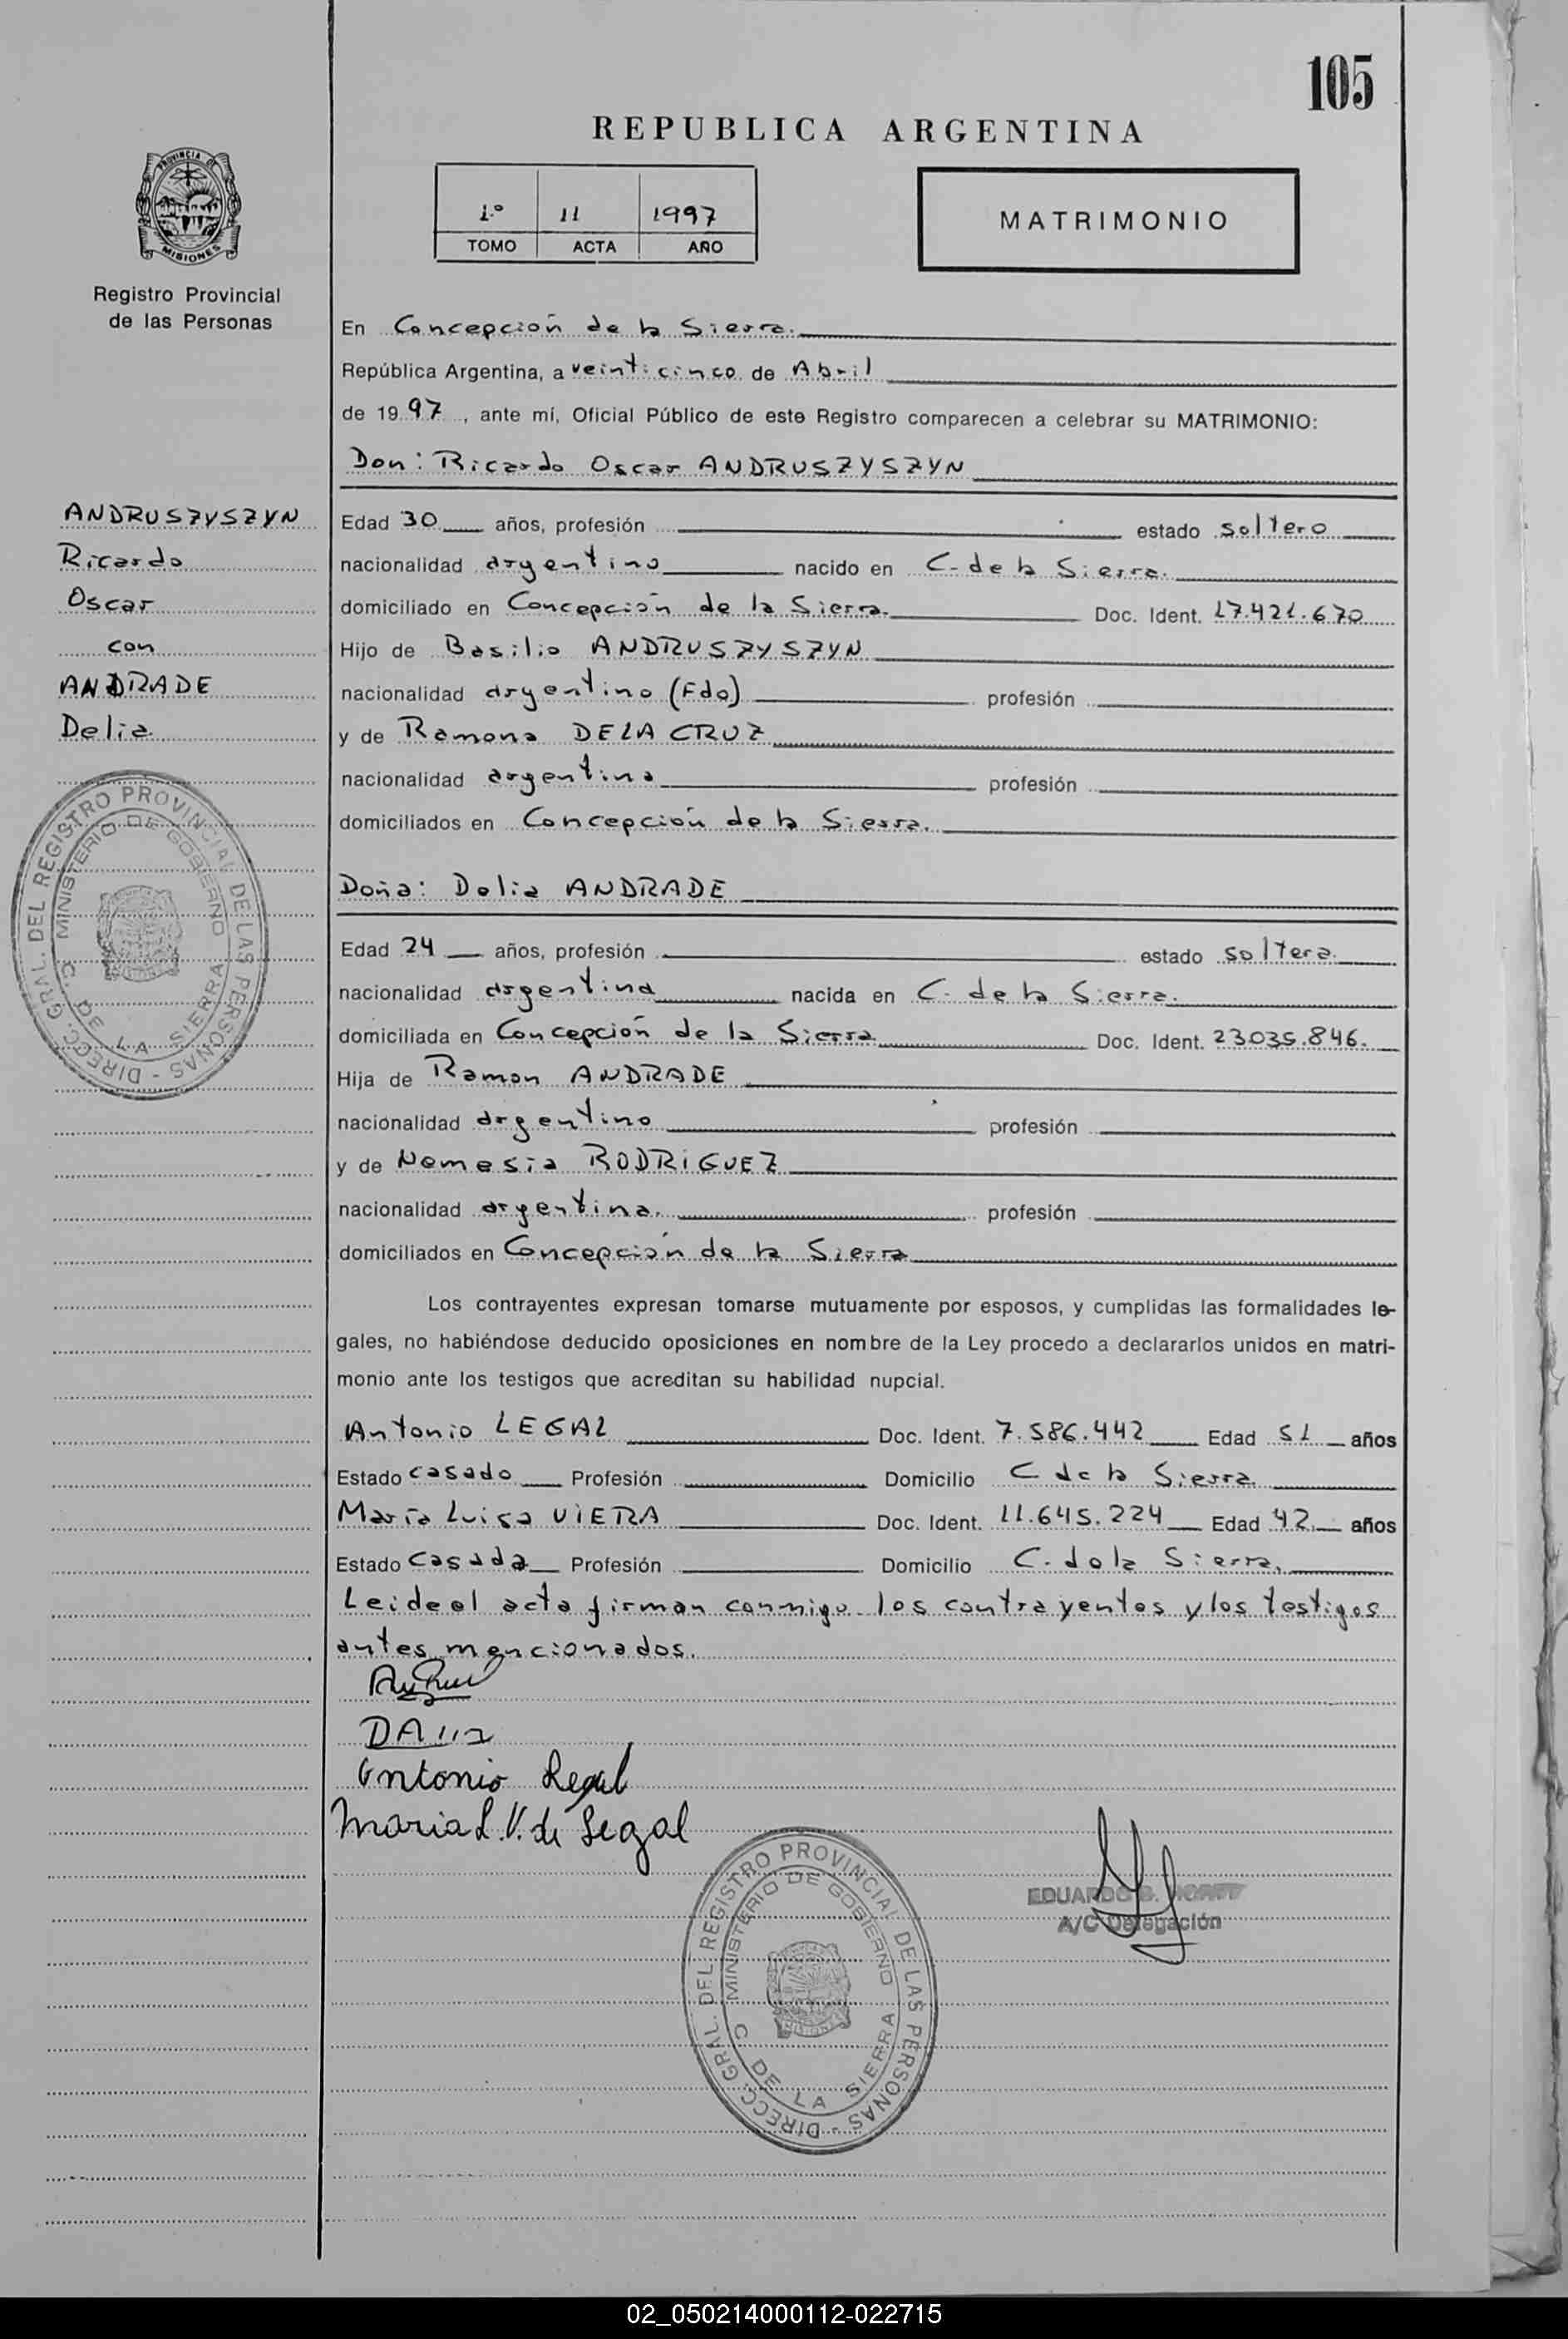 105
REPUBLICA ARGENTINA
1.º 11 1997
TOMO ACTA AÑO
MATRIMONIO
PROVINCIA DE
MISIONES
Registro Provincial
de las Personas
En Concepción de la Sierra.
República Argentina, a veinticinco de Abril
de 1997, ante mí, Oficial Público de este Registro comparecen a celebrar su MATRIMONIO:
Don: Ricardo Oscar ANDRUSZYSZYN
ANDRUSZYSZYN
Ricardo
Oscar
con
ANDRADE
Delia
Edad 30 años, profesión estado soltero
nacionalidad argentino nacido en C. de la Sierra.
domiciliado en Concepción de la Sierra. Doc. Ident. 17.421.670
Hijo de Basilio ANDRUSZYSZYN
nacionalidad argentino (Fdo) profesión
y de Ramona DE LA CRUZ
nacionalidad argentina profesión
domiciliados en Concepción de la Sierra.
DIRECC. GRAL. DEL REGISTRO PROVINCIAL DE LAS PERSONAS -
MINISTERIO DE GOBIERNO
C. DE LA SIERRA
Doña: Delia ANDRADE
Edad 24 años, profesión estado soltera.
nacionalidad argentina nacida en C. de la Sierra.
domiciliada en Concepción de la Sierra Doc. Ident. 23.035.846.
Hija de Ramon ANDRADE
nacionalidad argentino profesión
y de Nemesia RODRIGUEZ
nacionalidad argentina. profesión
domiciliados en Concepción de la Sierra
Los contrayentes expresan tomarse mutuamente por esposos, y cumplidas las formalidades le-
gales, no habiéndose deducido oposiciones en nombre de la Ley procedo a declararlos unidos en matri-
monio ante los testigos que acreditan su habilidad nupcial.
Antonio LEGAL Doc. Ident. 7.586.442 Edad 51 años
Estado casado Profesión Domicilio C de la Sierra
María Luisa VIERA Doc. Ident. 11.645.224 Edad 42 años
Estado casada Profesión Domicilio C. de la Sierra.
Leide el acta firman conmigo los contrayentes y los testigos
antes mencionados.
Antonio Legal
Maria L. V. de Legal
EDUARDO
A/C Delegación
DIRECC. GRAL. DEL REGISTRO PROVINCIAL DE LAS PERSONAS -
MINISTERIO DE GOBIERNO
C. DE LA SIERRA
02_050214000112-022715